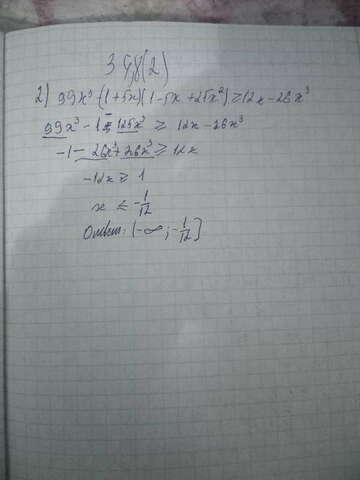 398(2)
2) 99x³-(1+5x)(1-5x+25x²)≥12x-26x³
99x³-1-125x³≥12x-26x³
-1-26x³+26x³≥12x
-12x≥1
x≤-1/12
Ответ: (-∞;-1/12]